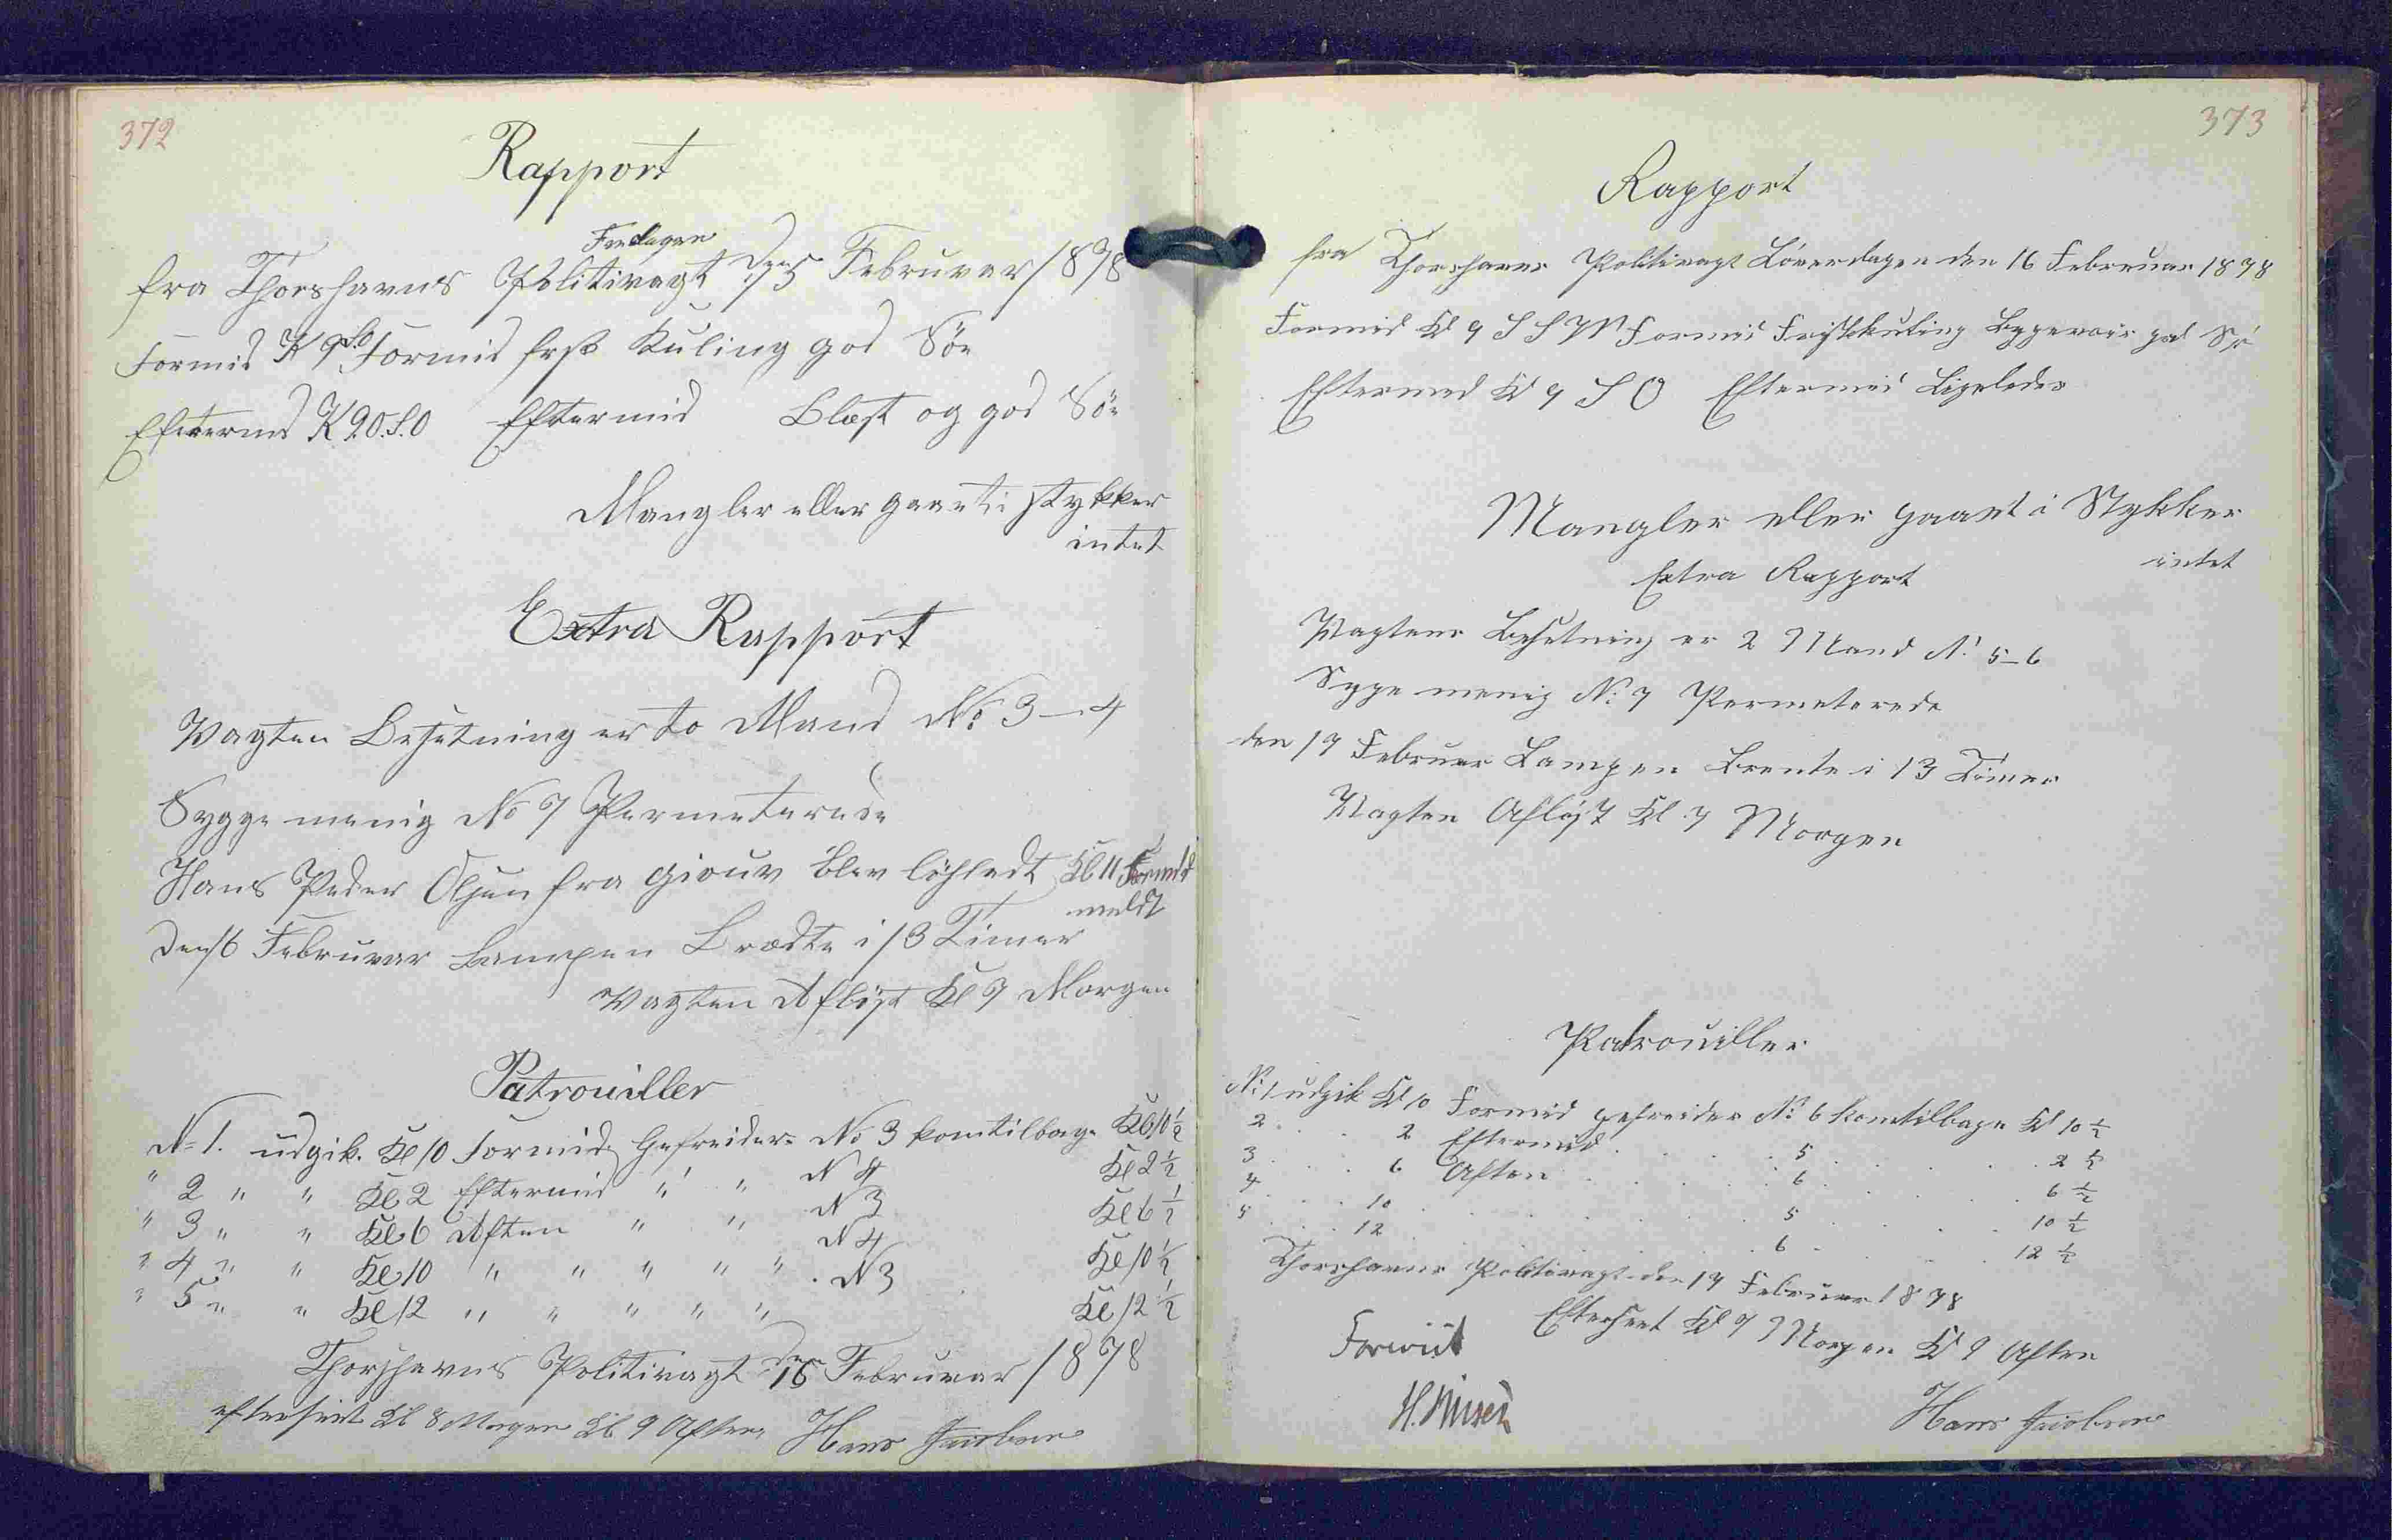 372
Rapport
Fredagen
fra Thorshavns Politivagt den 15 Februvar 1878
Formid K 9 S.O Formid frisk Kuling god Sö
Eftermd K 9 O.S.O Eftermid Blæst og god Sö
Mangler eller gaaet i stykker
intet
Extra Rapport
Vagten Besetning er to Mand No 3-4
Sygge menig No 7 Permeterede
Hans Peder Olsen fra Giouv blev Kl 11 Formid
meldt
den 16 Februvar Lampen Brædte i 13 Timer
Vagten Aflöst Kl 7 Morgen
Patrouiller
N= 1. udgik Kl 10 Formid Gefreider No 3 kom tilbage Kl 10 1/2
" 2 " " Kl 2 Eftermid " " N 4 Kl 2 1/2
" 3 " " Kl 6 Aften " " N 3 Kl 6 1/2
" 4 " " Kl 10 " " " " " N 4 Kl 10 1/2
" 5 " " Kl 12 " " " " " N 3 Kl 12 1/2
Thorshavns Politivagt den 16 Februvar 1878
efterseet Kl 8 Morgen Kl 9 Aften Hans Jacobsen
373
Rapport
fra Thorshavns Politivagt Löverdagen den 16 Februar 1878
Formid Kl 9 S S W Formid Friskkuling Bygevair god Sö
Eftermed Kl 9 S O Eftermid Ligeledes
Mangler eller gaaet i Stykker
intet
Extra Rapport
Vagtens Besetning er 2 Mand N: 5-6
Syge menig N: 7 Permeterede
den 17 Februar Lampen Brente i 13 Timer
Vagten Aflöst Kl 7 Morgen
Patrouiller
N: 1 udgik Kl 10 Formid gefreider N: 6 kom tilbage Kl 10 1/2
2 . . 2 Eftermid . . . 5 . . . 2 1/2
3 . . 6 Aften . . . 6 . . . 6 1/2
4 . . 10 . . . 5 . . . 10 1/2
5 . . 12 . . . 6 . . . 12 1/2
Thorshavns Politivagt den 17 Februar 1878
Efterseet Kl 7 Morgen Kl 9 Aften
Foreviist
Hans Jacobsen